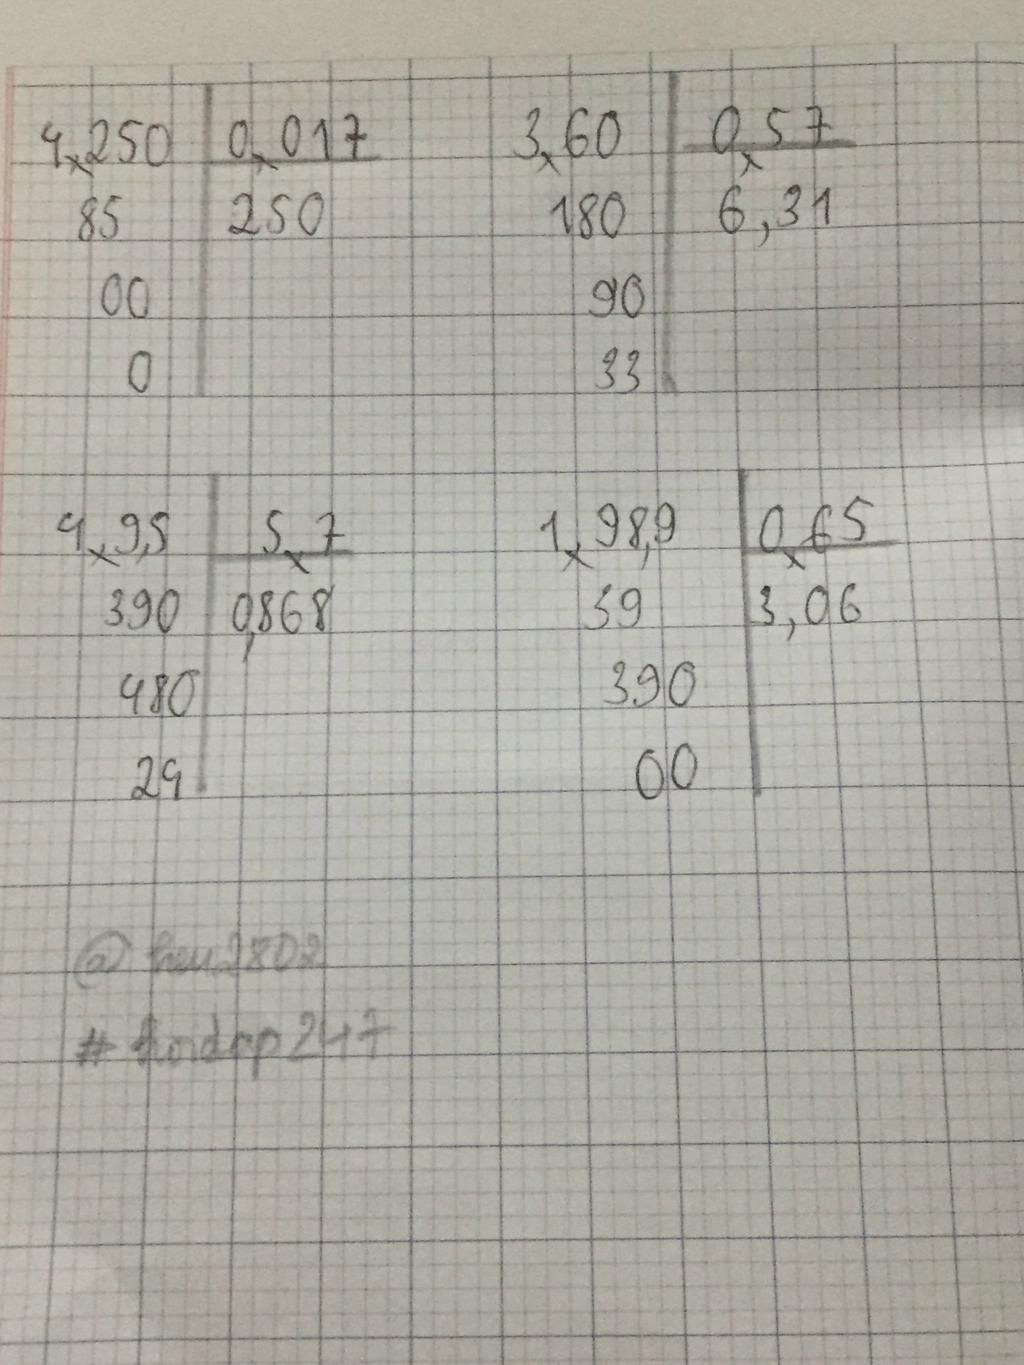 4,250 0,017
85 250
00
0
3,60 0,57
180 6,31
90
33
4,9,5 5,7
390 0,868
480
24
1,98,9 0,65
39 3,06
390
00
@hau2802
#hoidap247